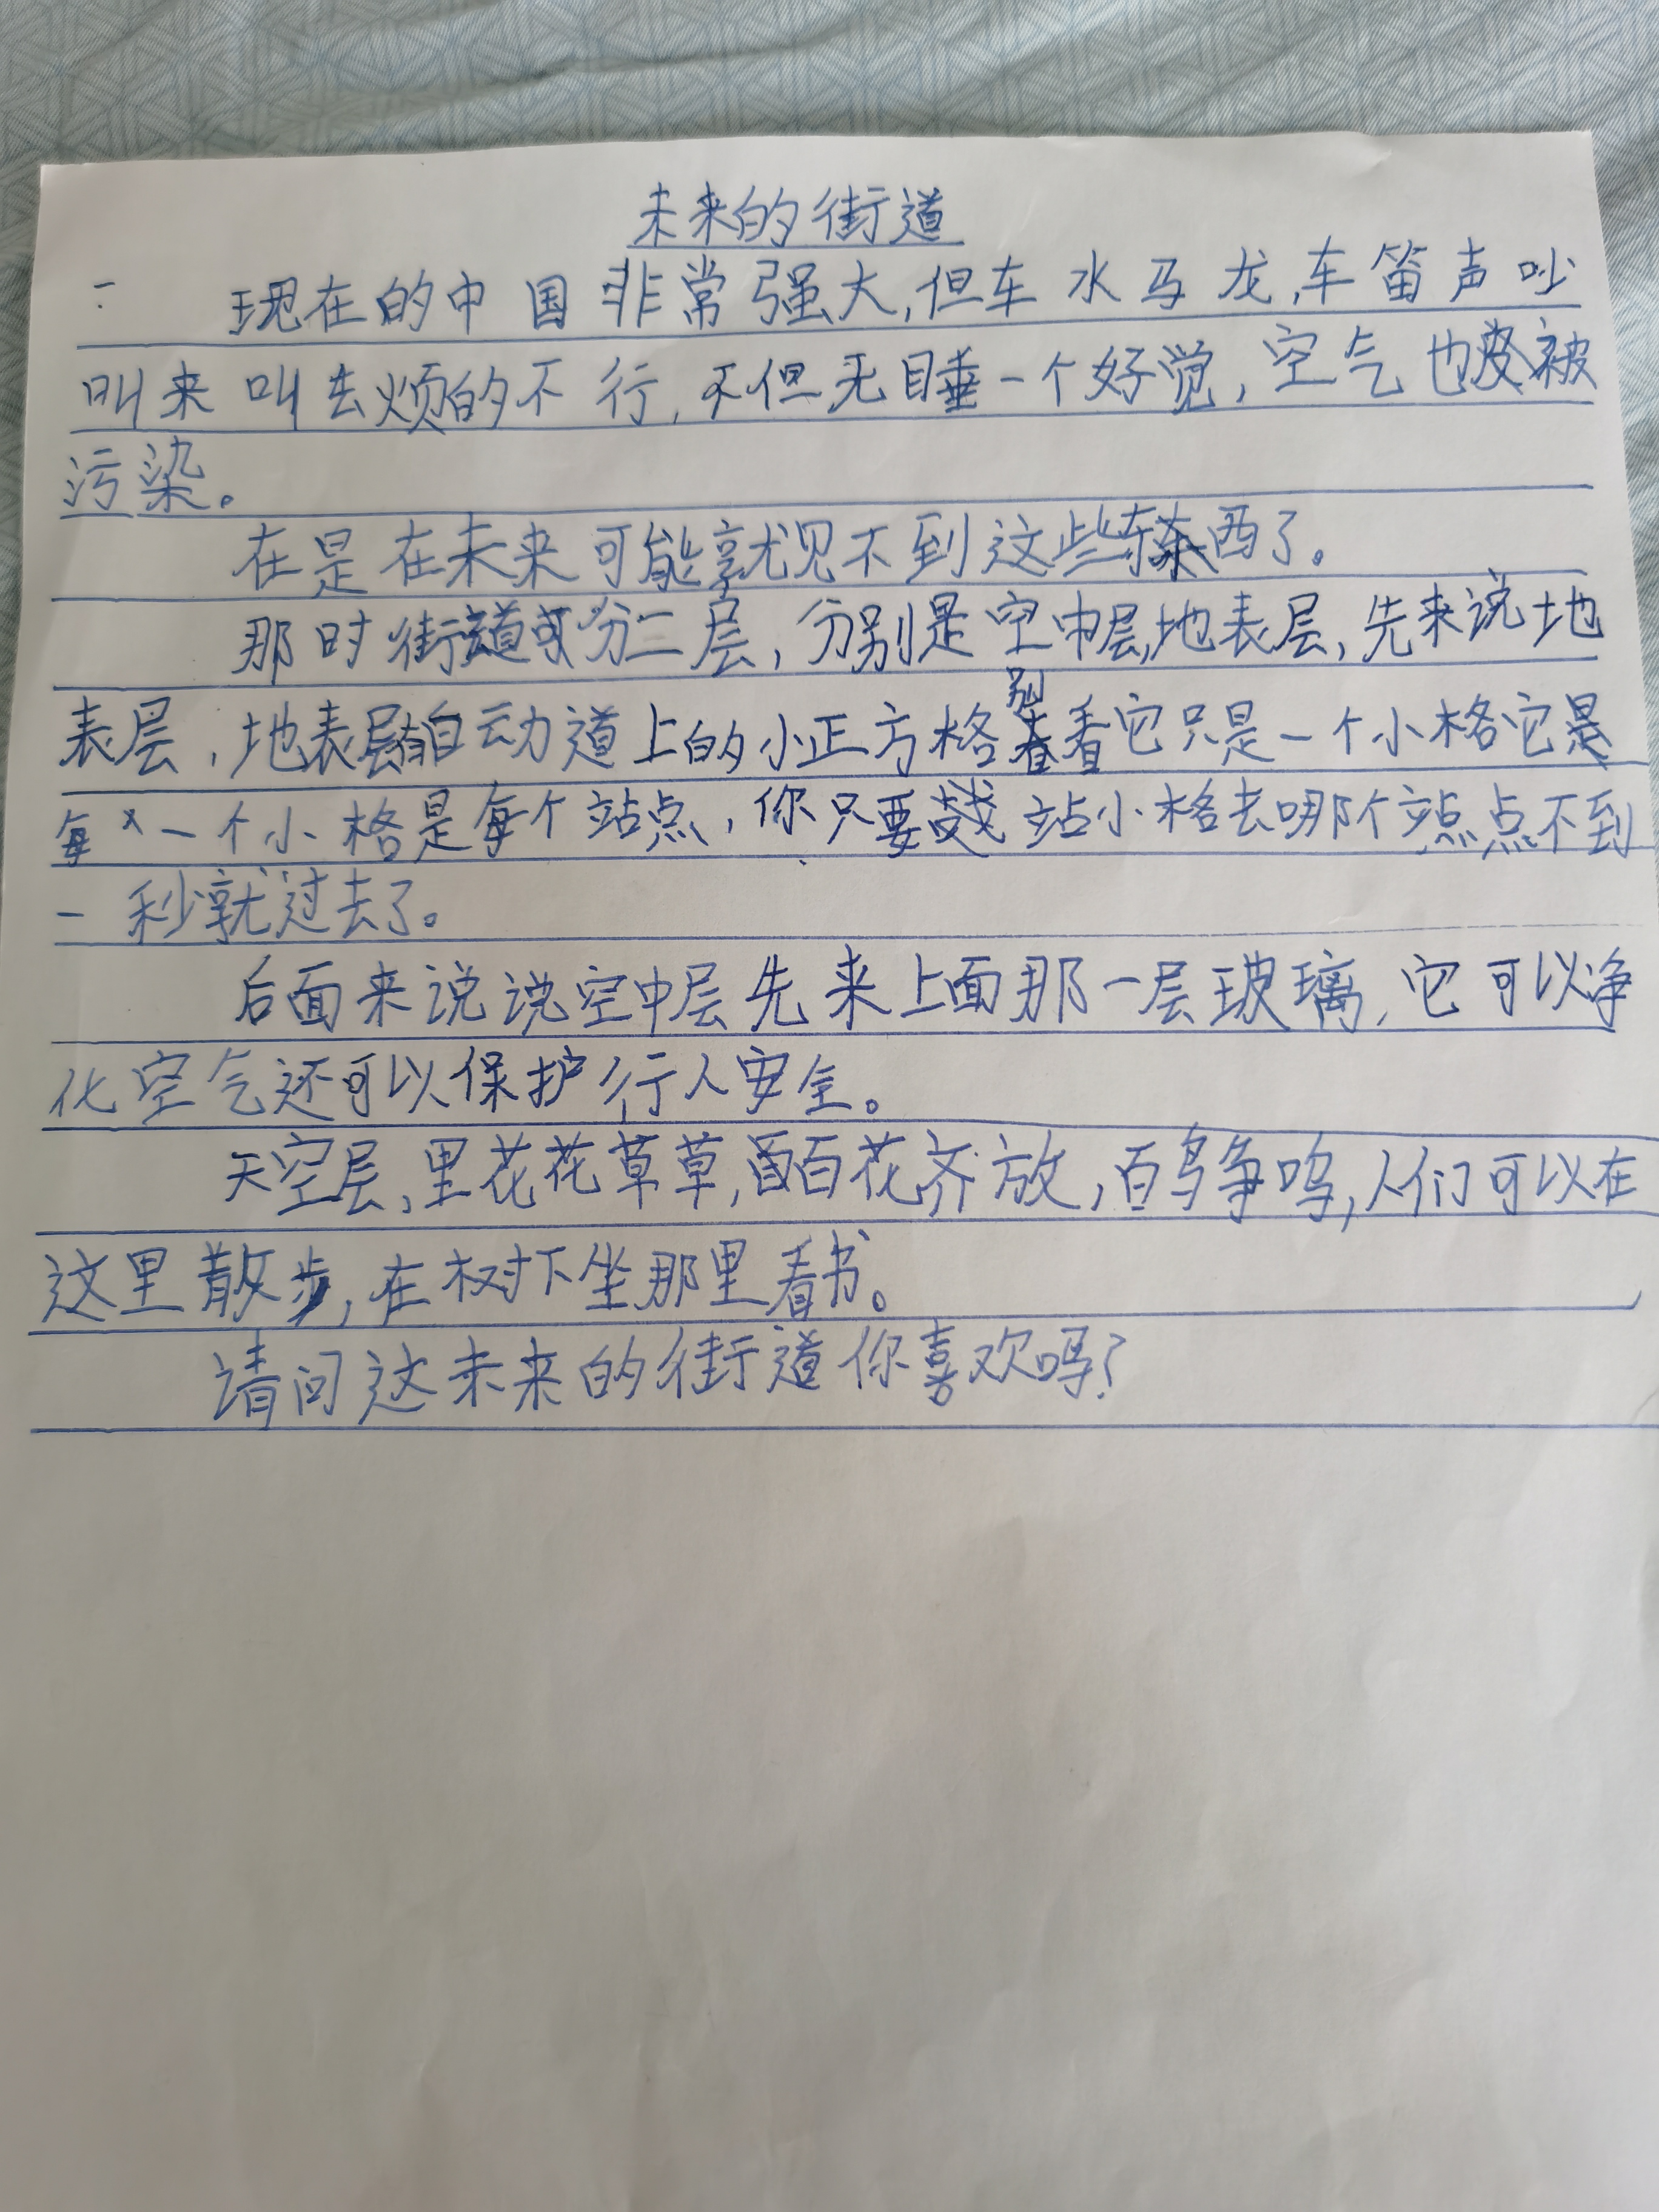 未来的街道
现在的中国非常强大,但车水马龙,车笛声吵
叫来叫去烦的不行,不但无睡一个好觉,空气也被
污染。
在是在未来可能就见不到这些东西了。
那时街道可分二层,分别是空中层,地表层,先来说地
表层,地表层有自动道上的小正方格别看它只是一个小格它是
每一个小格是每个站点,你只要站小格去哪个站点不到
一秒就过去了。
后面来说说空中层先来上面那一层玻璃,它可以净
化空气还可以保护行人安全。
天空层,里花花草草,百花齐放,百鸟争鸣,人们可以在
这里散步,在树下坐那里看书。
请问这未来的街道你喜欢吗?